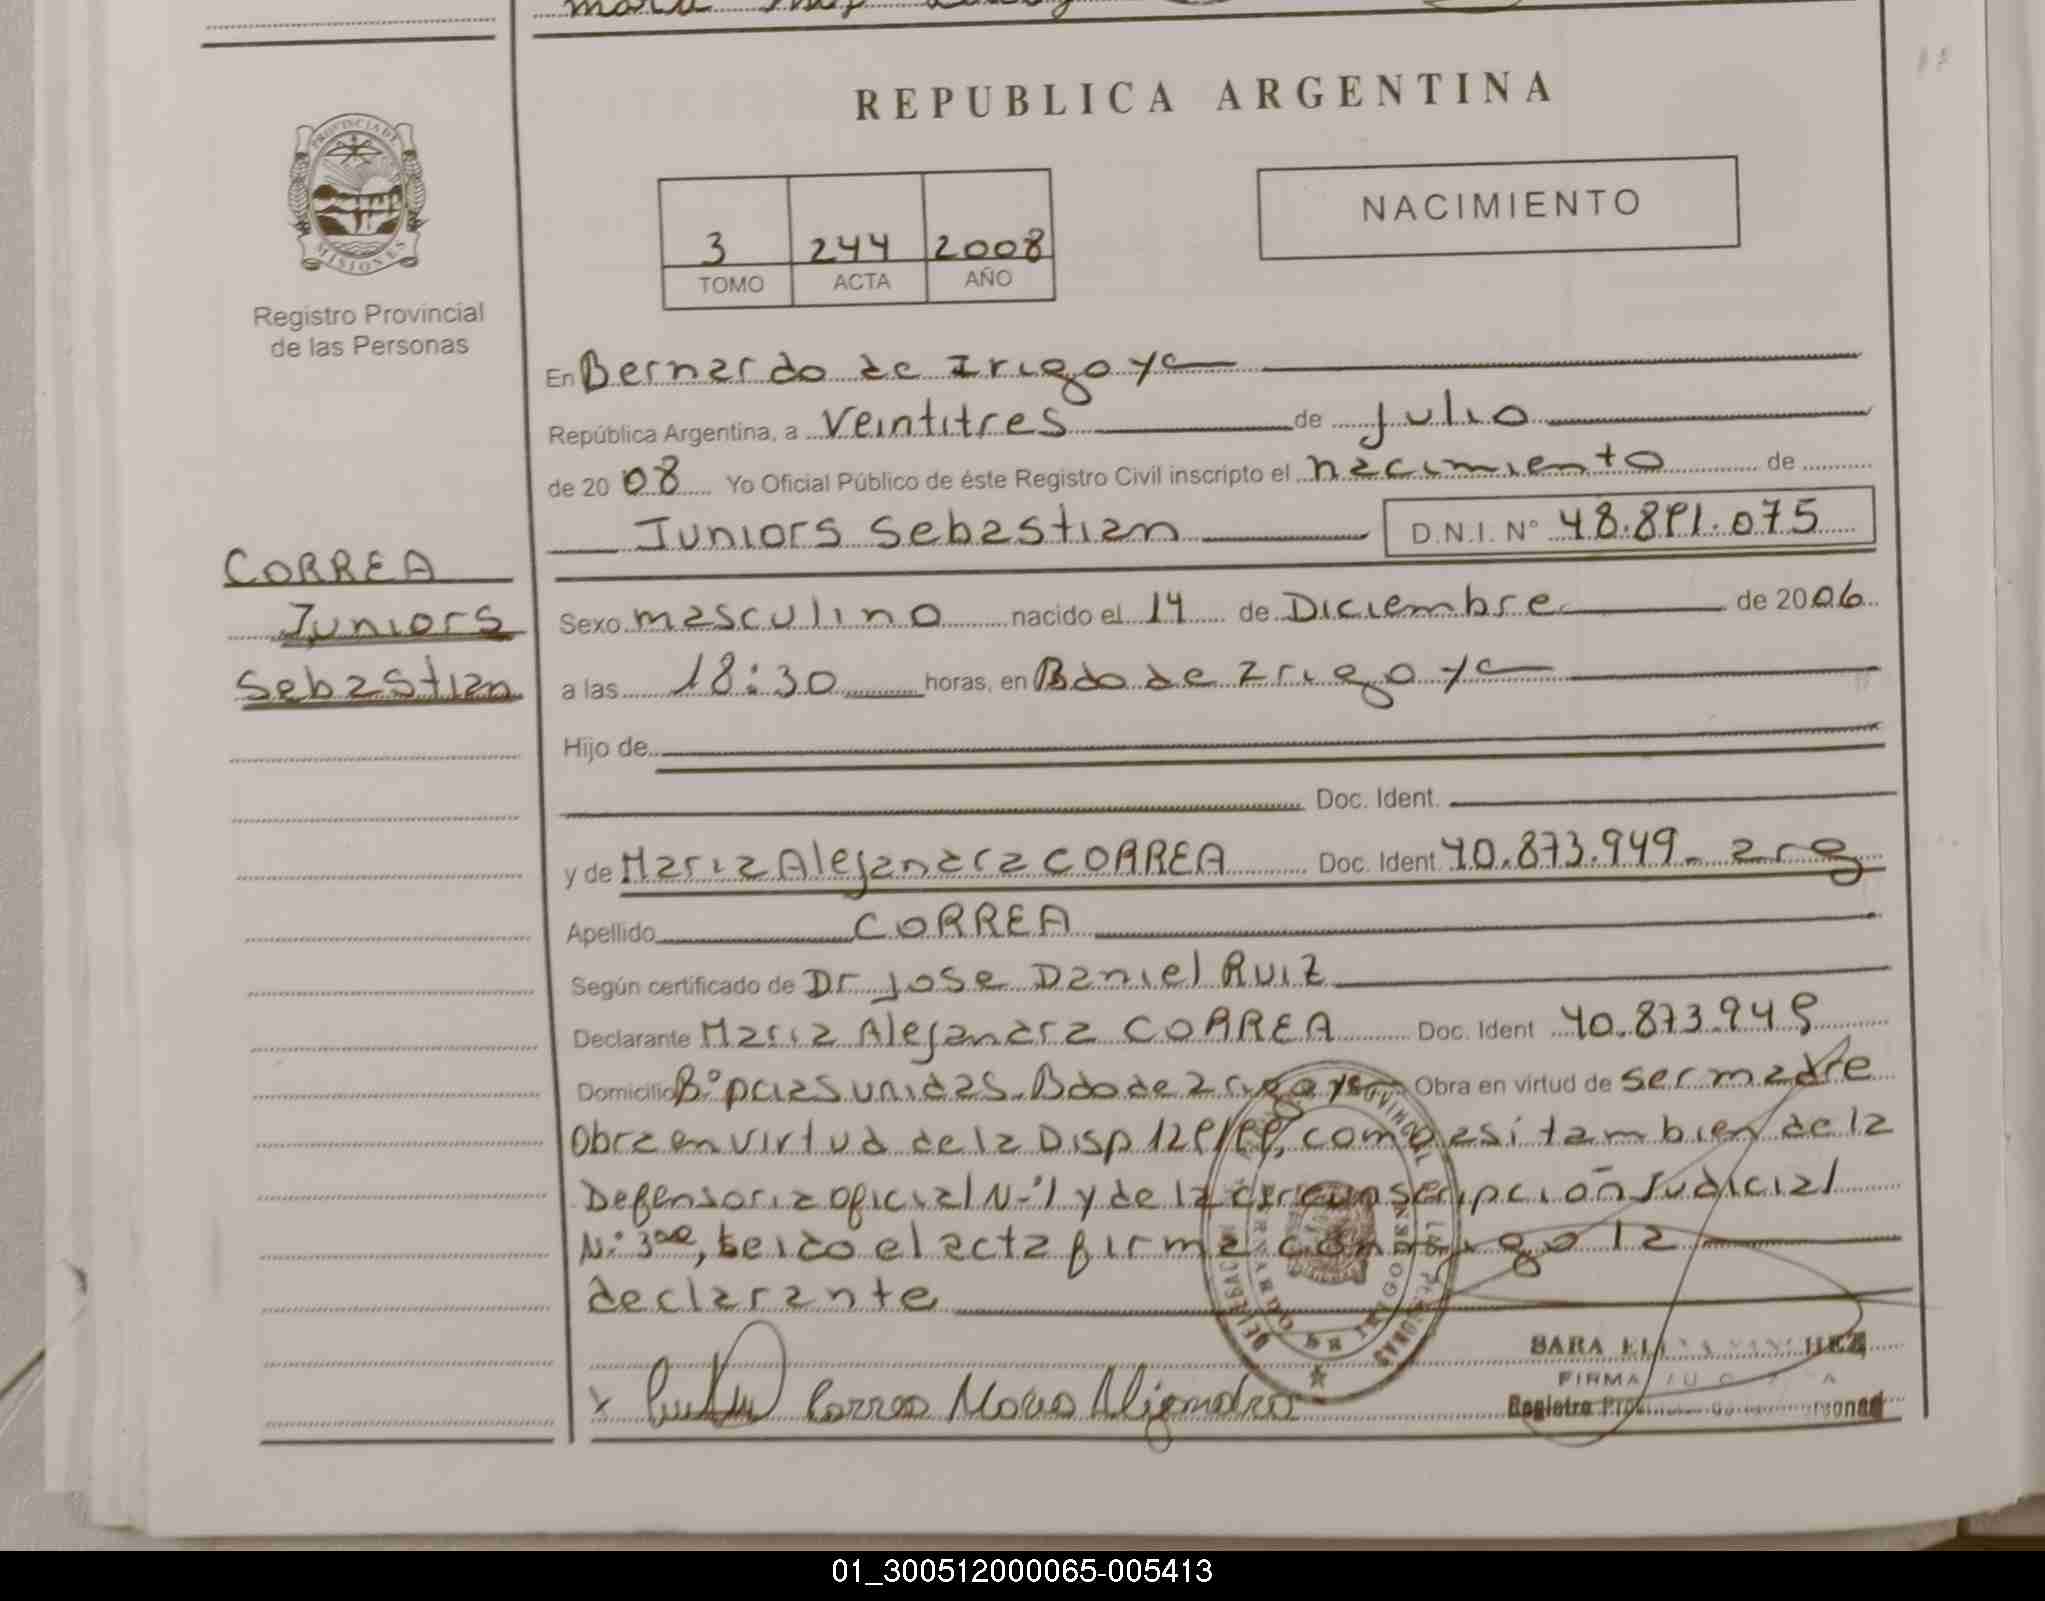 REPUBLICA ARGENTINA
PROVINCIA DE
MISIONES
Registro Provincial
de las Personas
NACIMIENTO
3 244 2008
TOMO ACTA AÑO
En Bernardo de Irigoye
República Argentina, a Veintitres de Julio
de 2008 Yo Oficial Público de éste Registro Civil inscripto el nacimiento de
Juniors Sebastian D.N.I. Nº 48.891.075
CORREA
Juniors
Sebastian
Sexo masculino nacido el 14 de Diciembre de 2006
a las 18:30 horas, en Bdo de Irigoye
Hijo de
Doc. Ident.
y de Maria Alejandra CORREA Doc. Ident 40.873.949 - arg
Apellido CORREA
Según certificado de Dr Jose Daniel Ruiz
Declarante Maria Alejandra CORREA Doc. Ident 40.873.949
Domicilio Bº paies unidas. Bdo de Irigoye Obra en virtud de ser madre
Obra en virtud de la Disp 129/99, como asi tambien de la
Defensoria oficial N-º1 y de la circunscripción Judicial
N:º 3ra, Leido el acta firma conmigo la
declarante
x Correa Maria Alejandra
SARA
FIRMA
Registro
01_300512000065-005413